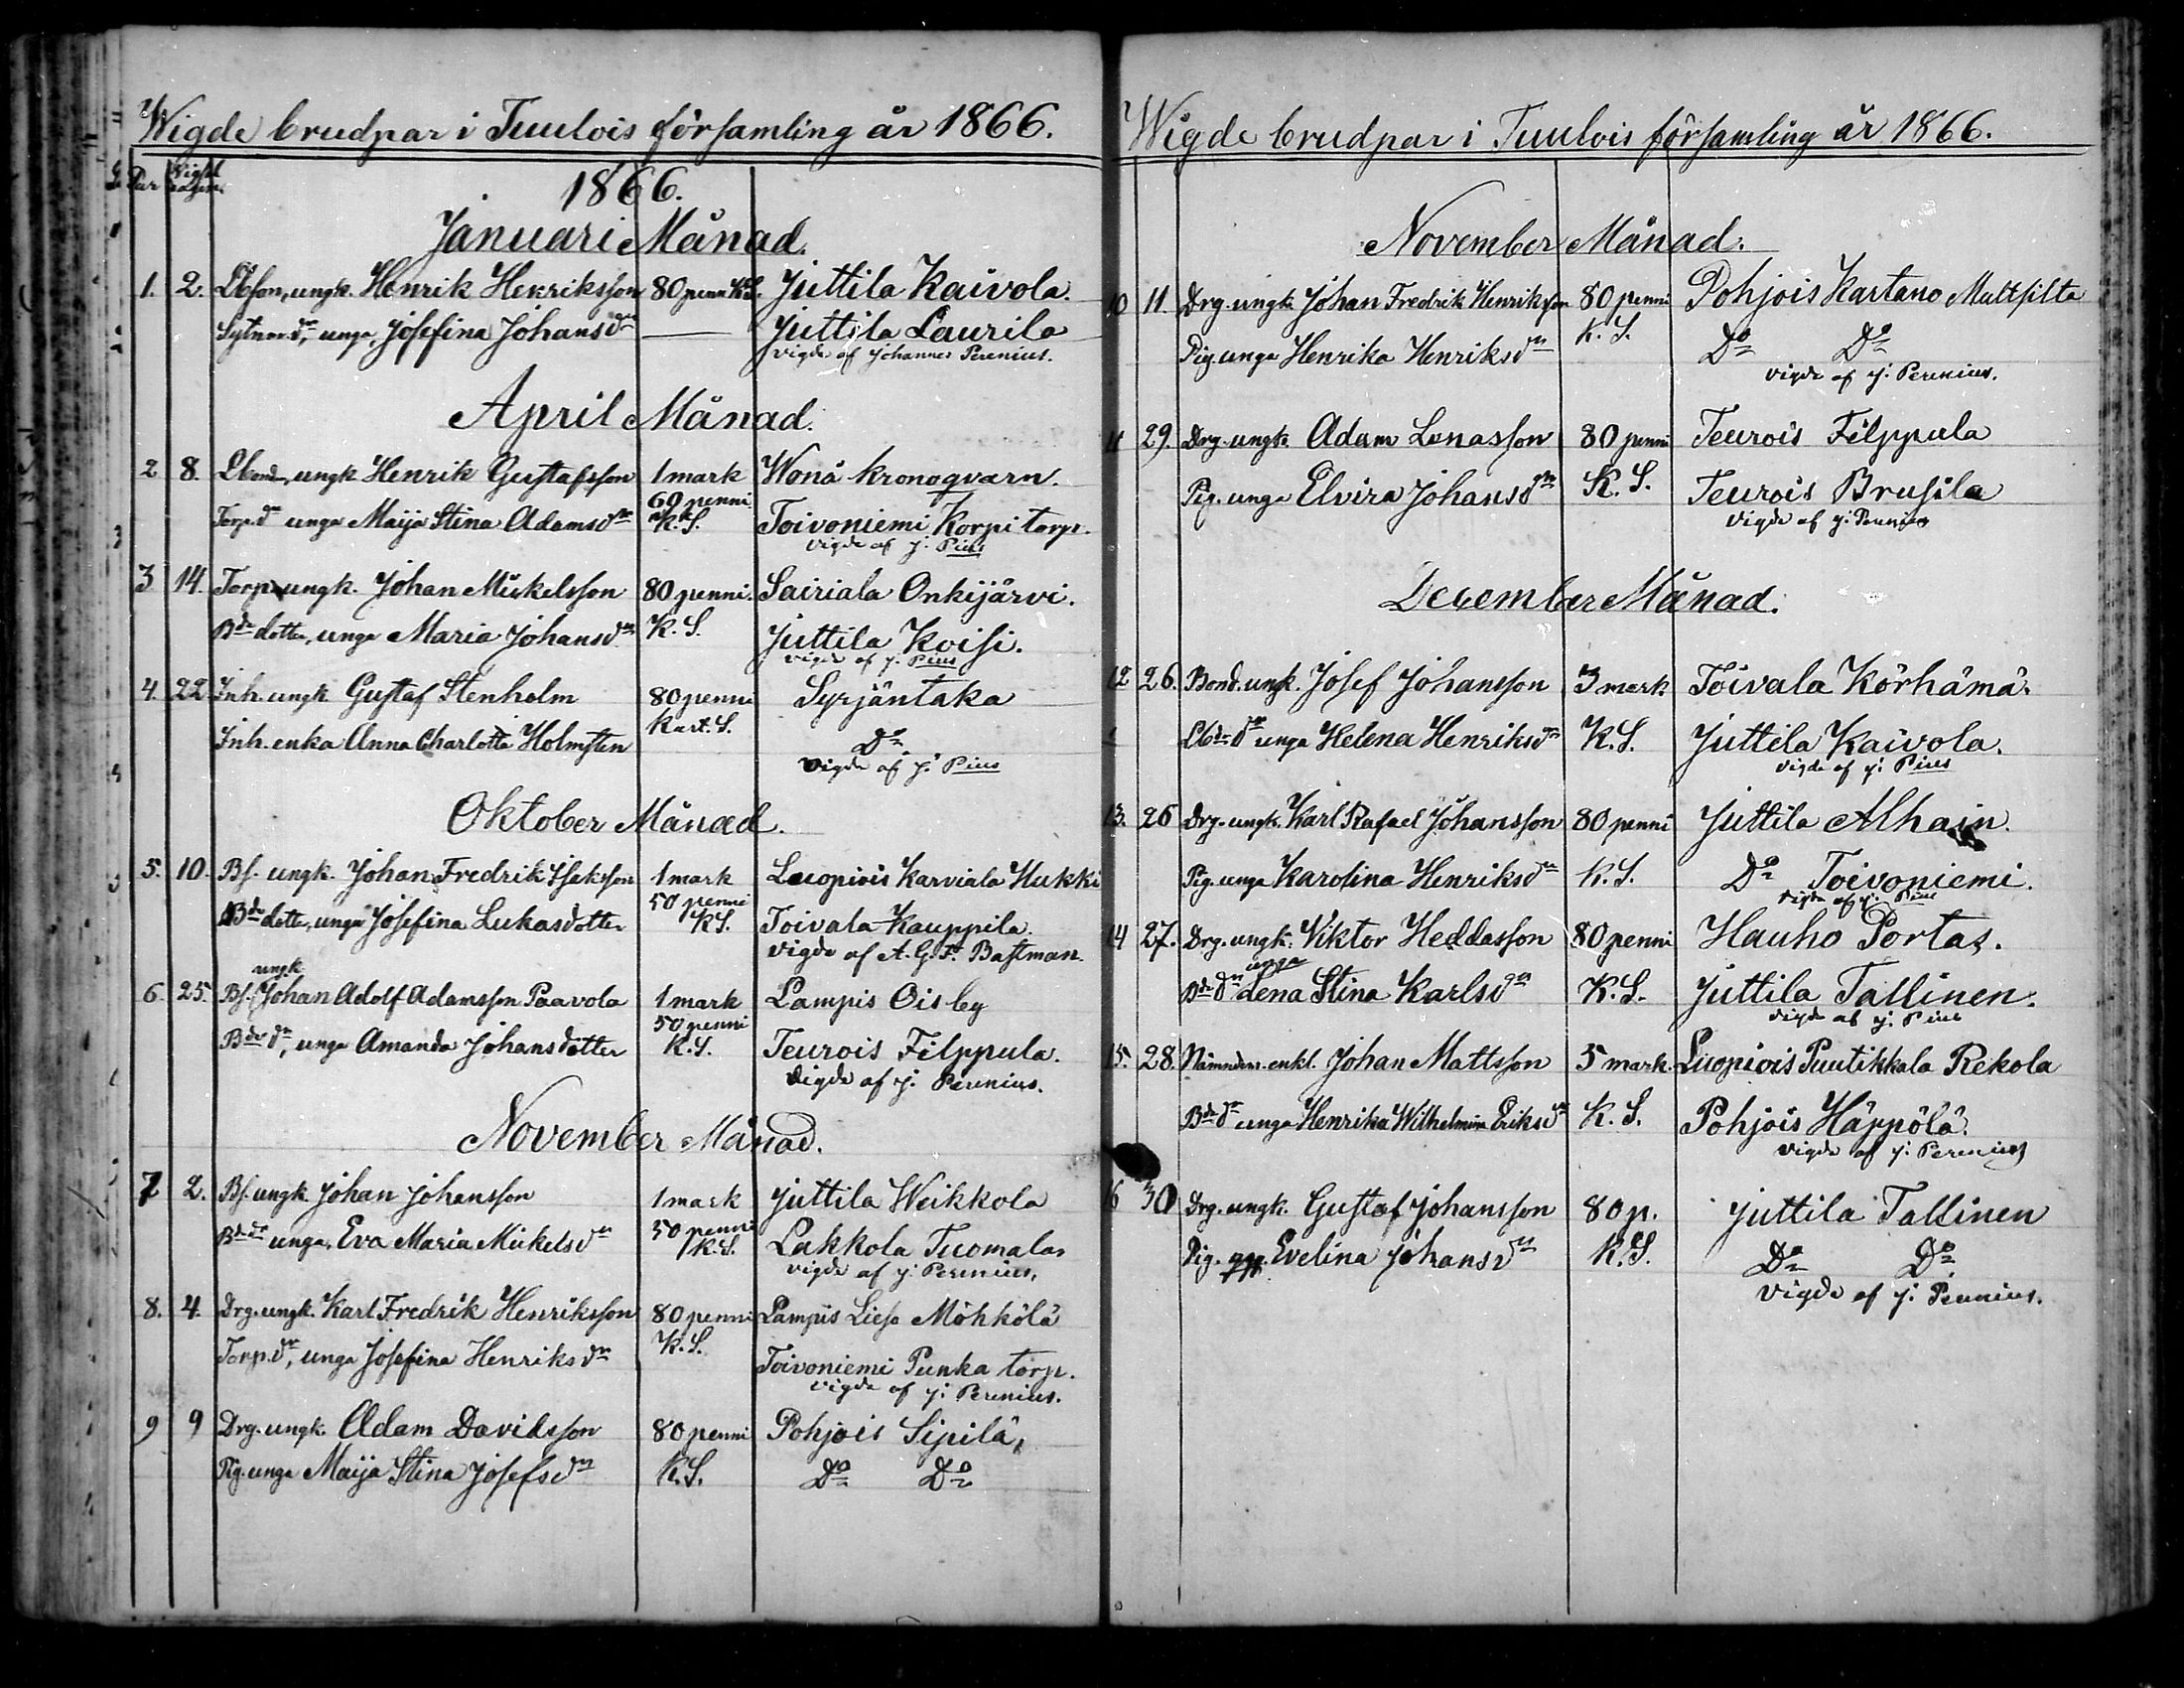 Wigde brudpar i Tuulois församling år 1866.
Par Vigsel dagen.
1866.
Januari Månad.
1. 2. Lbson, ungk. Henrik Henriksson 80 penn K.S. Juttila Kaivola.
unga, Josefina Johansdr Juttila Laurila
vigde af Johannes Perenius.
April Månad.
2 8. Lbond, ungk Henrik Gustafsson 1 mark Wonå kronoqvarn.
60 penni
Torp.dr unga Maija Stina Adamsdr K.S. Toivoniemi Korpi torp.
vigde af J. Pius
3 14. Torp. ungk. Johan Mickelsson 80 penni. Sairiala Onkijärvi.
Bde dotter, unga Maria Johansdr K.S. Juttila Koisi.
vigde af J. Pius
4. 22 Inh. ungk Gustaf Stenholm 80 penni Syrjäntaka
Inh. enka Anna Charlotta Holmsten Kart. S. Do
vigde af J. Pius
Oktober Månad.
5. 10. Bs. ungk. Johan Fredrik Isaksson 1 mark Luopiois Karviala Hukki
50 penni
Bde dotter, unga Josefina Lukasdotter KS. Toivala Kauppila.
vigde af A.G.F. Bastman.
ungk
6. 25. Bs. Johan Adolf Adamsson Paavola 1 mark Lampis Oisby
50 penni
Bde dr, unga Amanda Johansdotter K.S. Teurois Filppula.
vigde af J. Perenius.
November Månad.
7 2. Bs. ungk Johan Johansson 1 mark Juttila Weikkola
50 penni
Bde dr unga, Eva Maria Mickelsdr K.S. Lakkola Tuomala
vigde af J. Perenius,
8. 4. Drg. ungk. Karl Fredrik Henriksson 80 penni Lampis Lieso Möhkölä
K.S.
Torp.dr, unga Josefina Henriksdr Toivoniemi Punka torp.
vigde af J. Perenius.
9 9 Drg. ungk. Adam Davidsson 80 penni Pohjois Sipilä,
Pig. unga Maija Stina Josefsdr K.S. Do Do
Wigde brudpar i Tuulois församling år 1866.
November Månad.
10 11. Drg. ungk. Johan Fredrik Henriksson 80 penni Pohjois Kartano Mattsilta
K.S.
Pig. unga Henrika Henriksdr Do Do
vigde af J. Perenius.
11 29. Drg. ungk. Adam Lenasson 80 penni Teurois Filppula
Pig. unga Elvira Johansdr K.S. Teurois Brusila
vigde af J. Perenius
December Månad.
12 26. Bond. ungk. Josef Johansson 3 mark Toivala Körhämä.
Lbde dr unga Helena Henriksdr K.S. Juttila Kaivola.
vigde af J. Pius
13. 26 Drg. ungk. Karl Rafael Johansson 80 penni Juttila Alhain.
Pig. unga Karolina Henriksdr K.S. Do Toivoniemi.
vigde af J. Pius
14 27. Drg. ungk. Viktor Heddasson 80 penni Hauho Portas.
unga
Bde dr Lena Stina Karlsdr K.S. Juttila Tallinen.
vigde af J. Pius
15. 28. Nämndem. enkl. Johan Mattsson 5 mark. Luopiois Puutikkala Rekola
Bde dr unga Henrika Wilhelmina Eriksdr K.S. Pohjois Häppölä.
vigde af J. Perenius
16 30 Drg. ungk. Gustaf Johansson 80 p. Juttila Tallinen
Pig. Evelina Johansdr K.S. Do Do
vigde af J. Perenius.